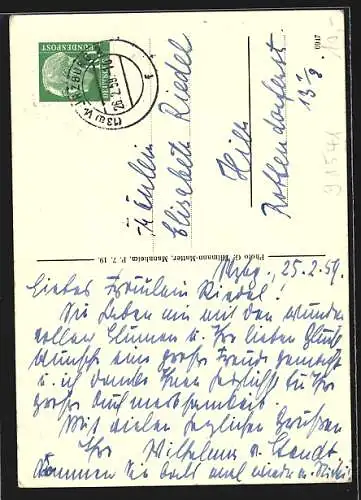 DEUTSCHE
BUNDESPOST
(13a) WÜRZBURG
26.2.59
Fräulein
Elisabeth Riedel
Hier
Rottendorferst.
13 1/8
6947
Photo G. Tillmann-Matter, Mannheim, P. 7. 19.
Wzbg., 25.2.59
Liebes Fräulein Riedel!
Sie haben mir mit den wunder
vollen Blumen u. Ihr lieben Glück
wünsche eine große Freude gemacht
u. ich danke Ihnen herzlichst für Ihre
große Aufmerksamkeit.
Mit vielen herzlichen Grüßen
Ihr Wilhelm v.
Kommen Sie bald mal wieder